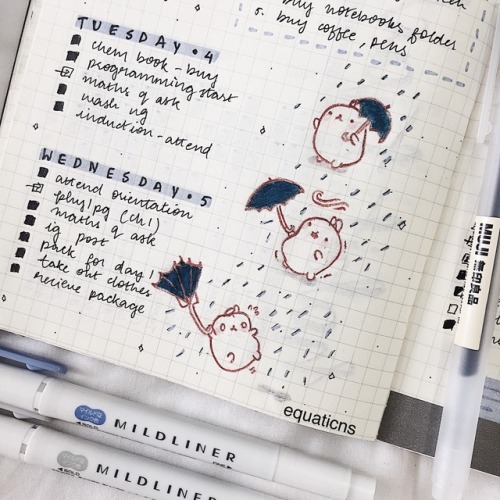 buy notebooks folder
5. buy coffee, pens
TUESDAY • 4
chem book - buy
programming start
maths q ask
wash ug
induction - attend
WEDNESDAY • 5
attend orientation
phy/pg (ch1)
maths q ask
ig post
pack for day 1
take out clothes
recieve package
equations
MUJI 無印良品
マイルドな
インク
BOLD
MILDLINER
FINE
BOLD
MILDLINER